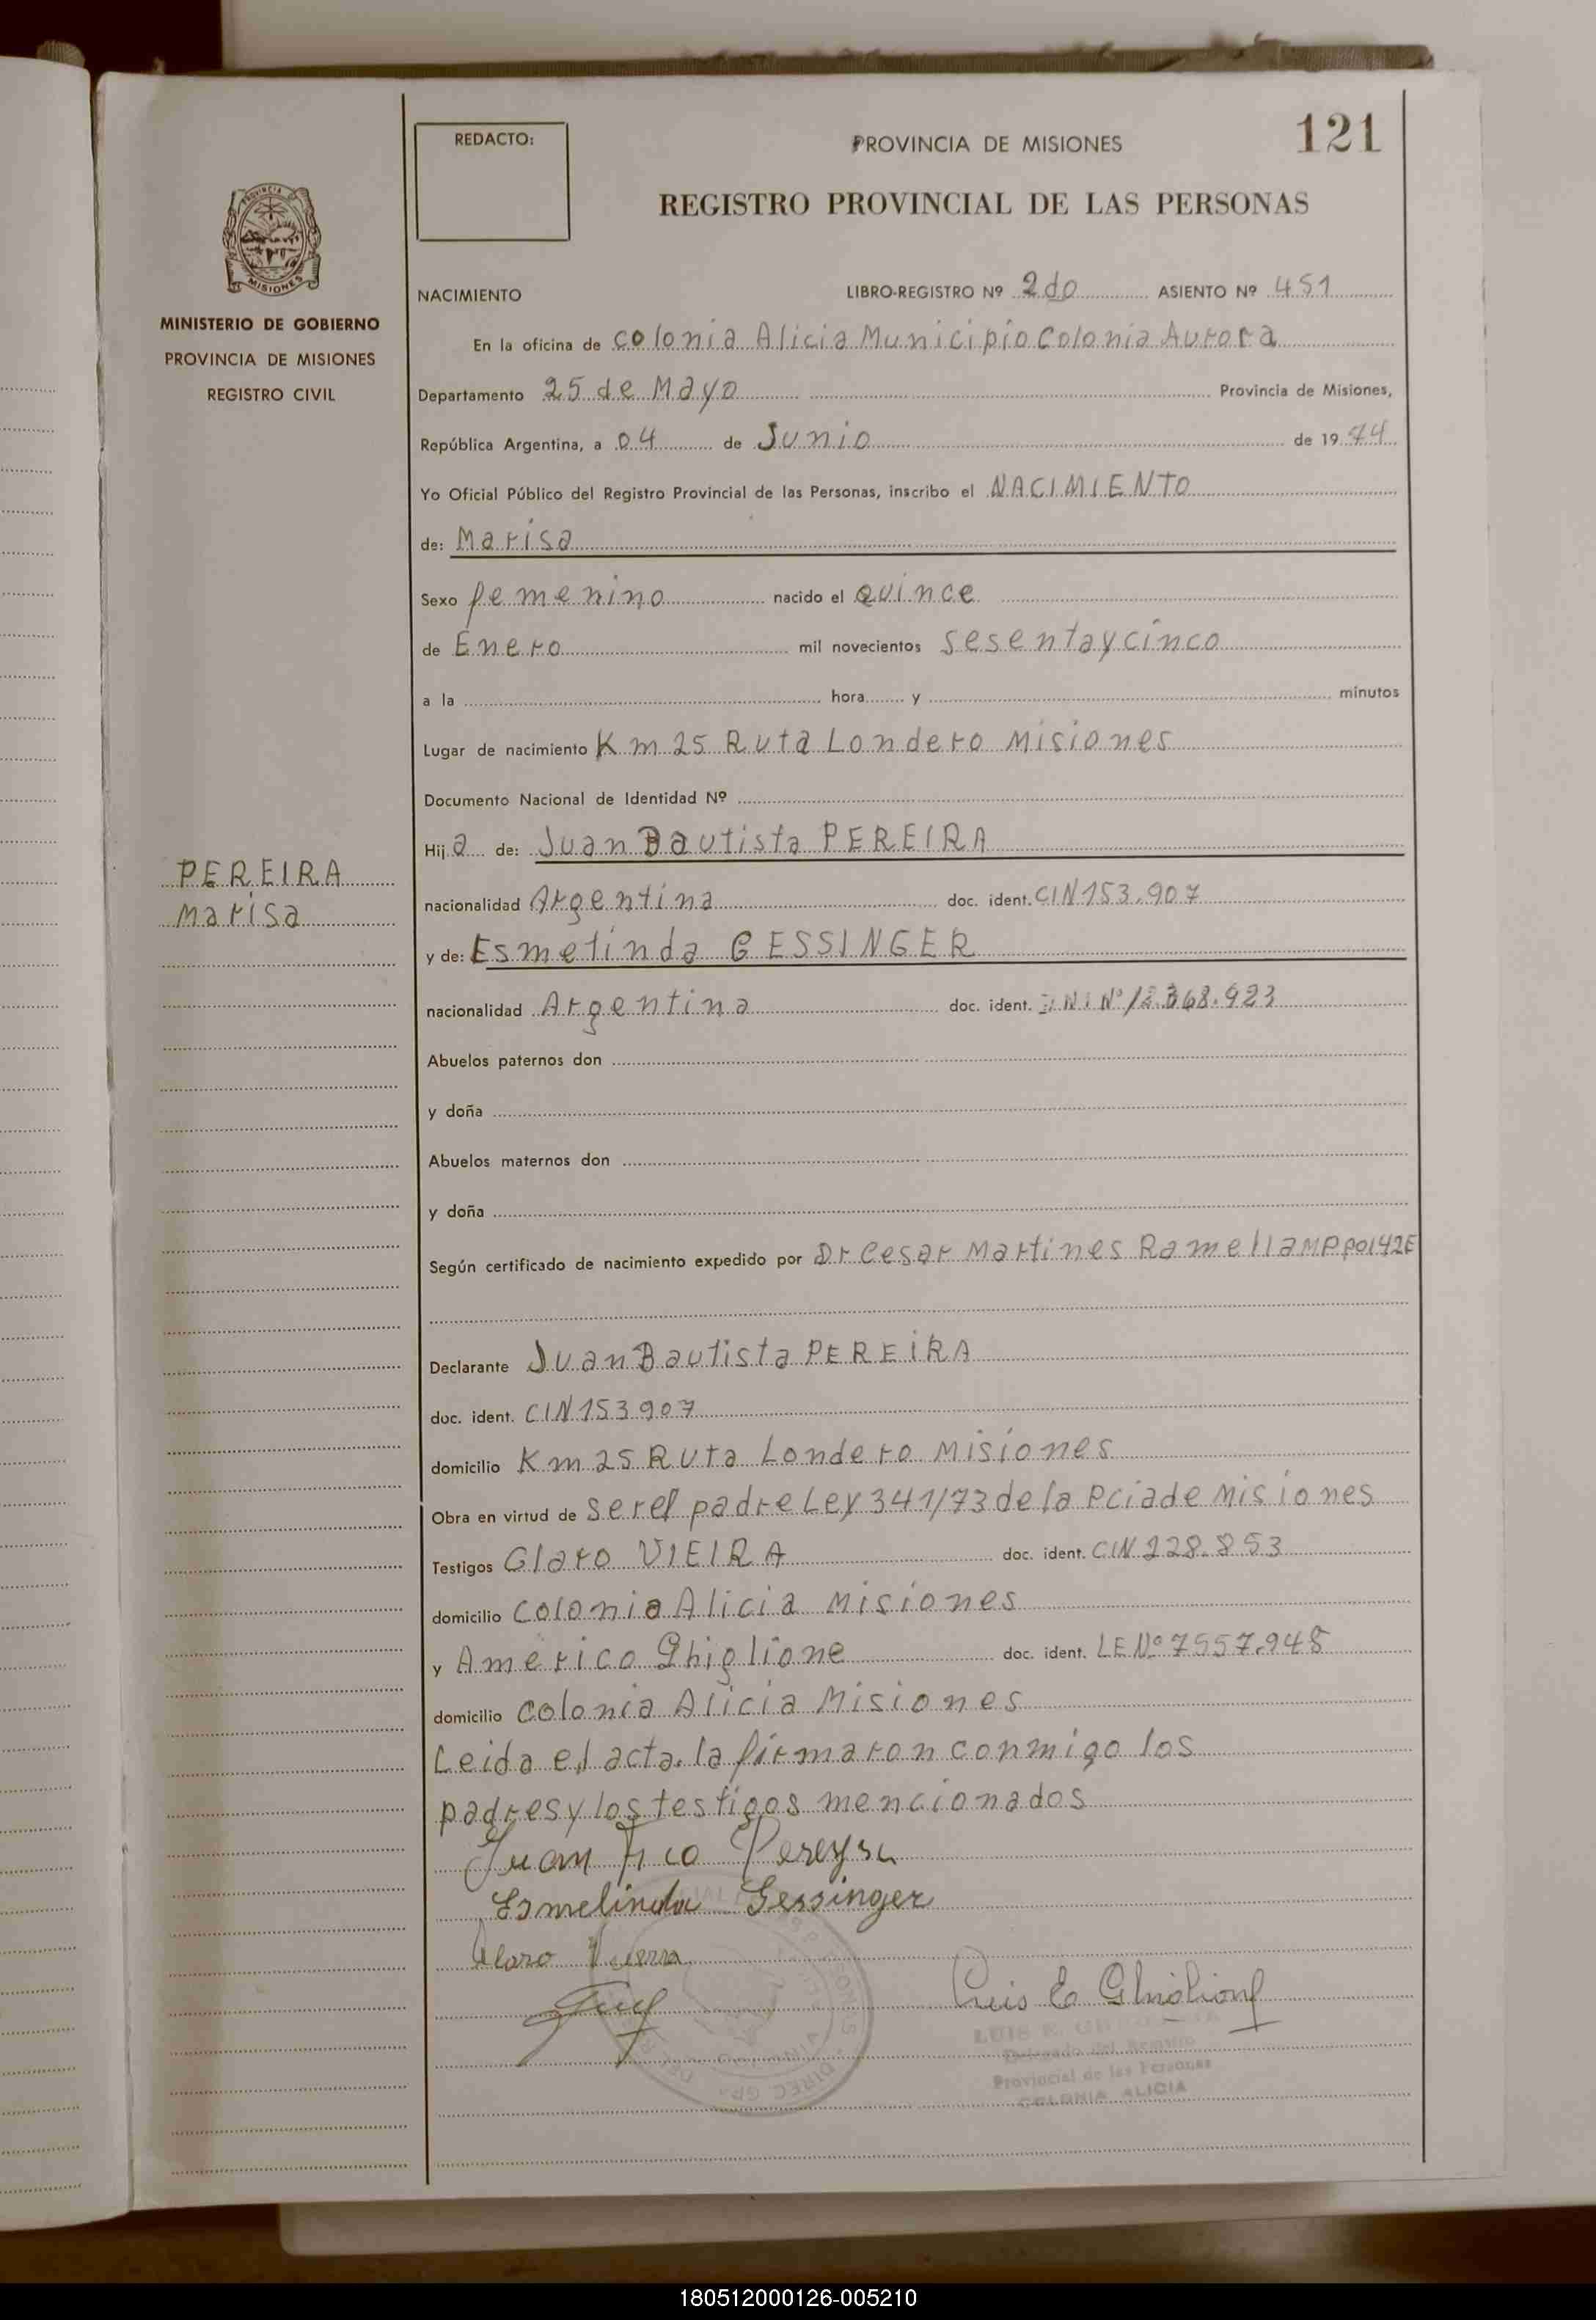 121
REDACTO:
PROVINCIA DE MISIONES
REGISTRO PROVINCIAL DE LAS PERSONAS
PROVINCIA DE
MISIONES
MINISTERIO DE GOBIERNO
PROVINCIA DE MISIONES
REGISTRO CIVIL
NACIMIENTO LIBRO-REGISTRO Nº 2do ASIENTO Nº 451
En la oficina de colonia Alicia Municipio Colonia Aurora
Departamento 25 de Mayo Provincia de Misiones,
República Argentina, a 04 de Junio de 19 74
Yo Oficial Público del Registro Provincial de las Personas, inscribo el NACIMIENTO
de: Marisa
Sexo femenino nacido el Quince
de Enero mil novecientos sesentaycinco
a la hora y minutos
Lugar de nacimiento Km 25 Ruta Londero Misiones
Documento Nacional de Identidad Nº
Hija de: Juan Bautista PEREIRA
PEREIRA
Marisa
nacionalidad Argentina doc. ident. CIN153.907
y de: Esmelinda GESSINGER
nacionalidad Argentina doc. ident.
Abuelos paternos don
y doña
Abuelos maternos don
y doña
Según certificado de nacimiento expedido por Dr Cesar Martines Ramella MP
Declarante Juan Bautista PEREIRA
doc. ident. CIN153907
domicilio Km 25 Ruta Londero Misiones
Obra en virtud de ser el padre Ley 341/73 de la Pcia de Misiones
Testigos Claro VIEIRA doc. ident. CIN 228.853
domicilio Colonia Alicia Misiones
y Americo Ghiglione doc. ident. LE Nº 7557.948
domicilio Colonia Alicia Misiones
Leida el acta. la firmaron conmigo los
padres y los testigos mencionados
Juan Pereyra
Esmelinda Gessinger
Claro Vieira
Luis E Ghiglione
LUIS E.
Delegado del Registro
Provincial de las Personas
COLONIA ALICIA
180512000126-005210